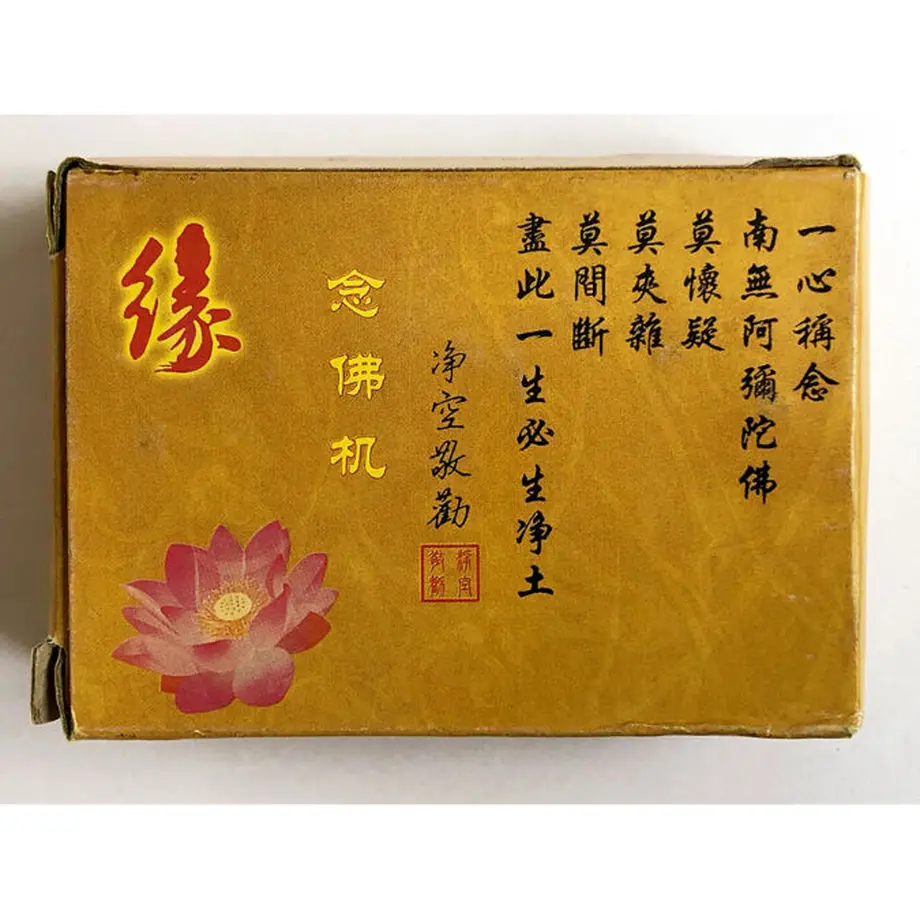 一心稱念
南無阿彌陀佛
莫懷疑
莫夾雜
莫間斷
盡此一生必生净土
净空敬勸
念佛机
缘